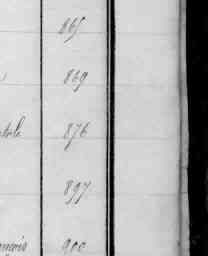 865
869
876
897
900